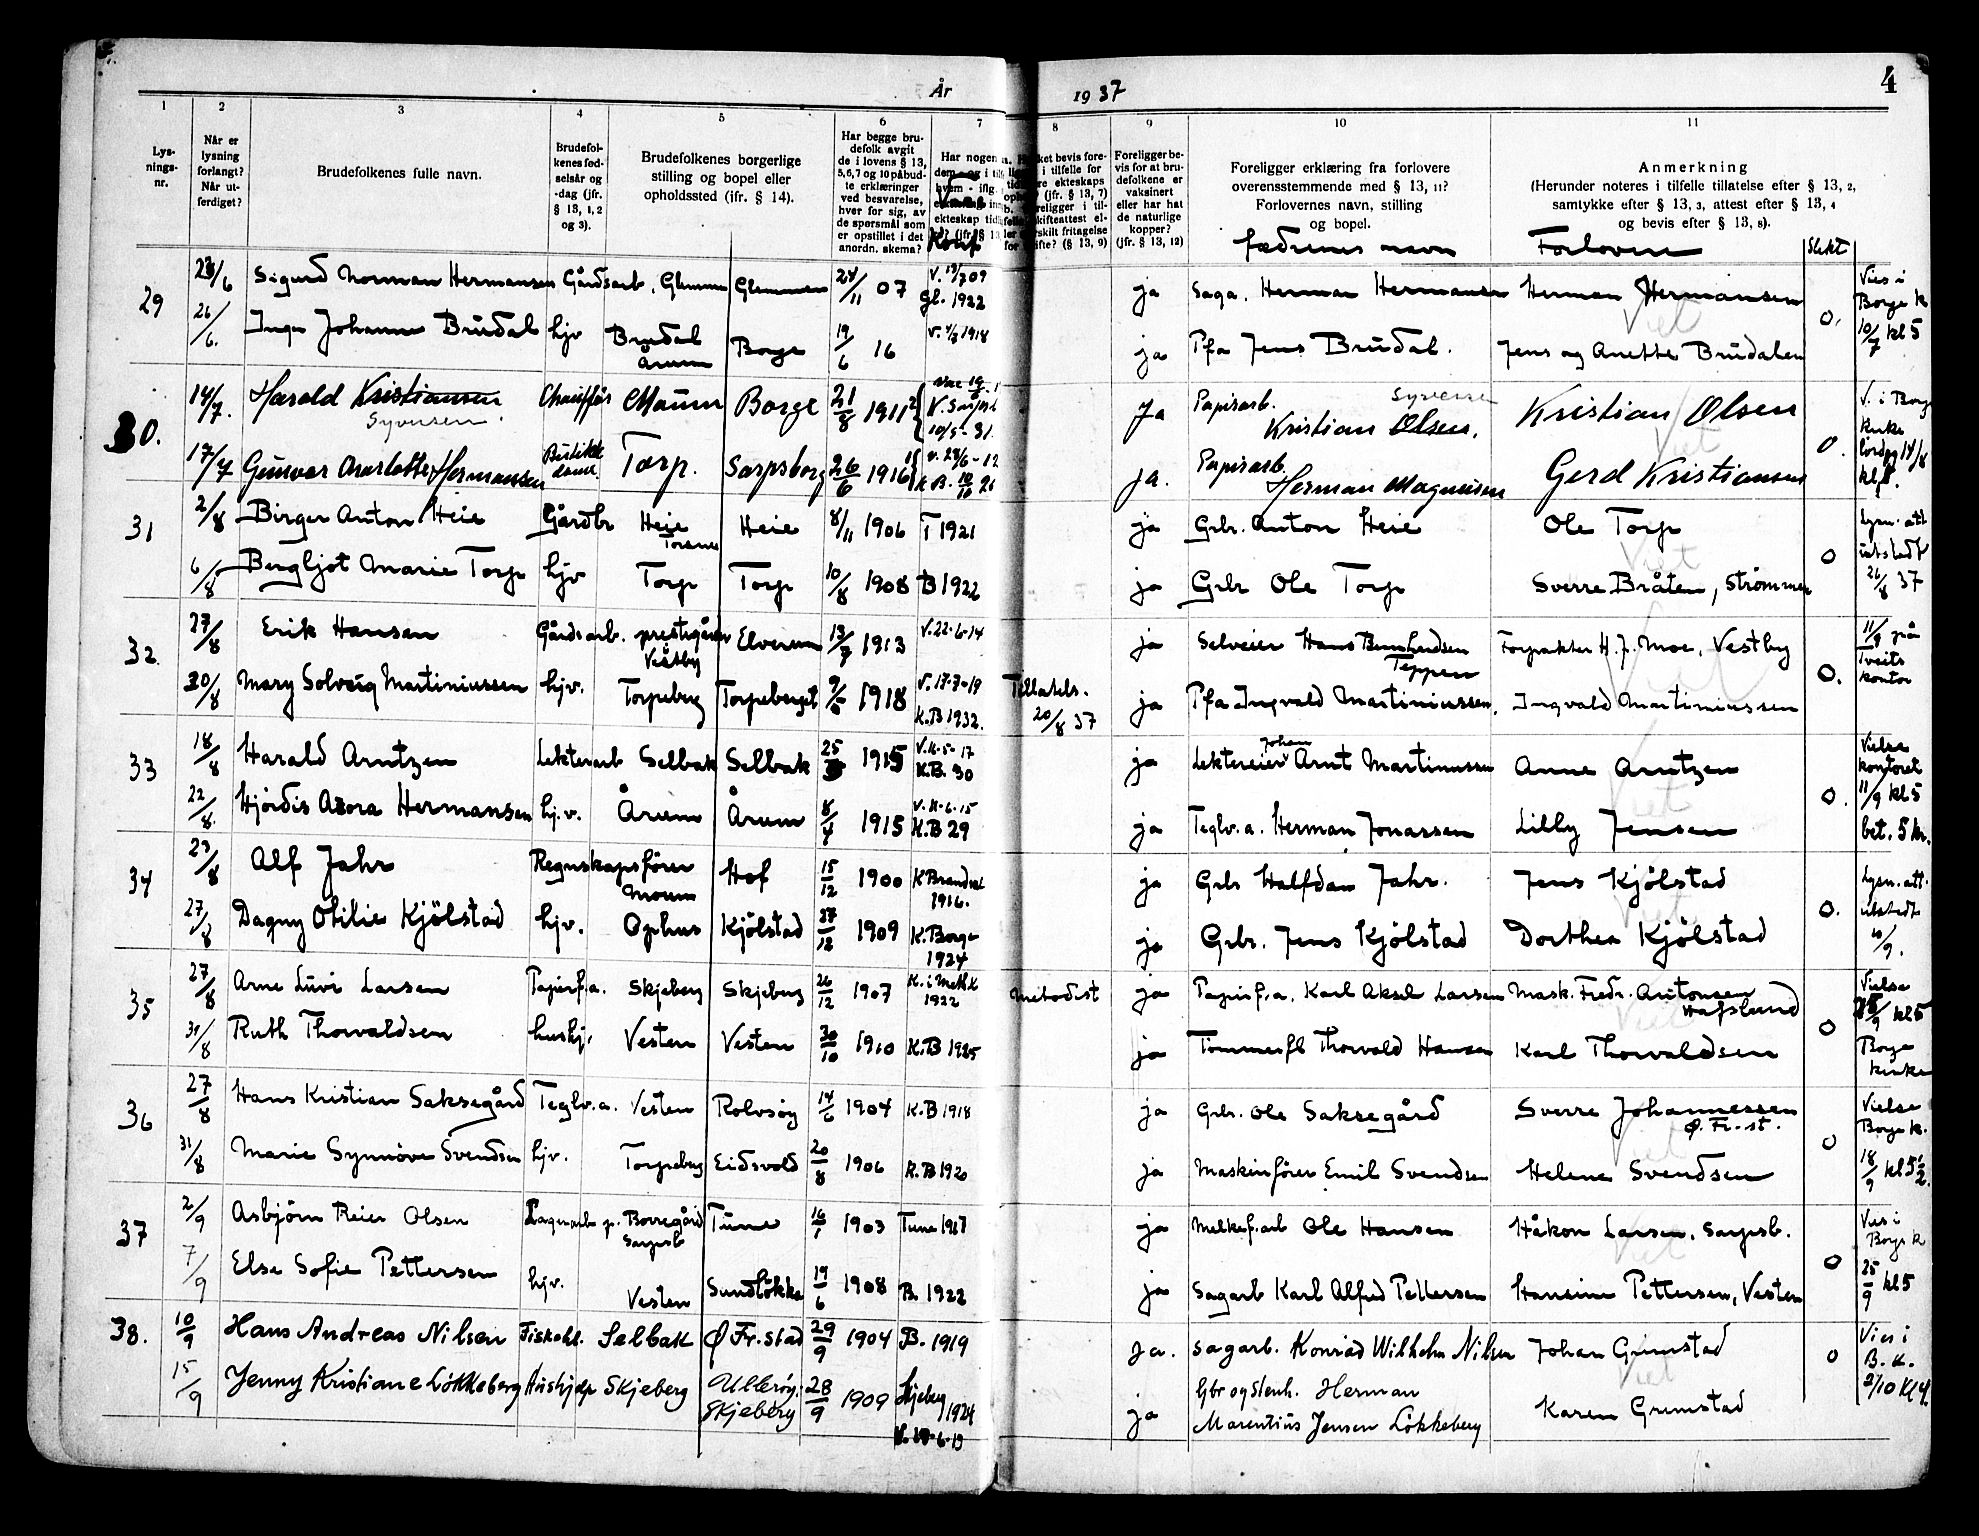 År 1937
4
1 2 3 4 5 6 7 8 9 10 11
Lys-
nings-
nr.
Når er
lysning
forlangt?
Når ut-
ferdiget?
Brudefolkenes fulle navn.
Brudefol-
kenes fød-
selsår og
-dag (jfr.
§ 13, 1, 2
og 3).
Brudefolkenes borgerlige
stilling og bopel eller
opholdssted (ifr. § 14).
Har begge bru-
defolk avgit
de i lovens § 13,
5,6,7 og 10 påbud-
te erklæringer
ved besvarelse,
hver for sig, av
de spørsmål som
er opstillet i det
anordn. skema?
Har nogen
ekteskap
Konf
Foreligger be-
vis for at bru-
defolkene er
vaksinert
eller har hat
de naturlige
kopper?
(jfr. § 13, 12)
Foreligger erklæring fra forlovere
overensstemmende med § 13, 11?
Forlovernes navn, stilling
og bopel.
fædrenes navn
Anmerkning
(Herunder noteres i tilfelle tillatelse efter § 13, 2,
samtykke efter § 13, 3, attest efter § 13, 4
og bevis efter § 13, 8).
Forlovere
Slekt
29 26/6 Sigurd Norman Hermansen Gårdsarb. Glemmen Glemmen 24/11 07 V. 09 Gl. 1922 ja Saga. Herman Hermansen Herman Hermansen
26/6 Inga Johanne Brudal hjv Brudal Årum Borge 19/6 16 1918 ja Pfa Jens Brudal. Jens og Anette Brudalen 0. Vies i Borge k 10/7 kl 5
30. 14/7. Harald Kristiansen Syversen Chauffør Moum Borge 21/8 1911 10/5-31 Ja Papirarb. Kristian Olsen, Syversen Kristian Olsen
17/7 Gunvor Charlotte Hermansen Torp. Sarpsborg 26/6 1916 ja. Papirarb. Herman Magnusen Gerd Kristiansen 0. V. i Borge kirke lørdag 14/8
31 2/8 Birger Anton Heie Gårdbr Heie Torsnes Heie 8/11 1906 T 1921 ja Grbr. Anton Heie Ole Torp
6/8 Bergljot Marie Torp hjv Torp Torp 10/8 1908 B 1922 ja Grbr Ole Torp Sverre Bråten, Strømmen 0 Lysn. att utstedt 26/8 37
32. 27/8 Erik Hansen Gårdsarb. prestegården Vestby Elverum 13/7 1913 V. 22-6-14 ja Selveier Hans Teppen Forpakter H. J. Moe, Vestby
30/8 Mary Solveig Martiniussen hjv. Torpeberg Torpeberget 1918 V. 17-7-19 K.B 1932. Tillatels. 20/8 37 ja Pfa Ingvald Martiniussen. Ingvald Martiniussen 0. 11/9 på Tveits kontor
33 18/8 Harald Arntzen Lekterarb Selbak Selbak 1915 K.B. 30 ja Lektereier Johan Arnt Martinussen Anne Arntzen
22/8. Hjørdis Azora Hermansen hj.v. Årum Årum 8/4 1915 K.B 29 ja Teglv.a. Herman Jonassen Lilly Jensen 0. Vielse kontoret 11/9 kl 5 bet. 5 kr.
34 23/8 Alf Jahr Regnskapsfører Moum Hof 15/12 1900 K Brandval 1916. ja Grbr Halfdan Jahr. Jens Kjölstad
27/8 Dagny Otilie Kjölstad hjv. Ophus Kjölstad 27/12 1909 K. Borge 1924 ja Grbr. Jens Kjölstad Dorthea Kjölstad 0. Lysn. att. utstedt 10/9.
35 27/8 Arne Livi Larsen Papirf.a. Skjeberg Skjeberg 26/12 1907 K. i Met.k 1922 Metodist ja Papirf.a. Karl Aksel Larsen Mask. Fredr. Antonsen Hafslund
31/8 Ruth Thorvaldsen hushj. Vesten Vesten 30/10 1910 K.B 1925 ja Tømmerfl Thorvald Hansen Karl Thorvaldsen 0 Vielse /9 kl 5 Borge kirke
36 27/8 Hans Kristian Saksegård Teglv.a. Vesten Rolvsøy 14/6 1904 K.B 1918 ja Grbr. Ole Saksegård Sverre Johannessen Ø. Fr-st.
31/8 Marie Synnöve Svendsen hjv. Torpeberg Eidsvold 20/8 1906 K.B 1920 ja Maskinfører Emil Svendsen Helene Svendsen 0 Vielse Borge k. 18/9 kl 5½.
37 2/9 Asbjörn Reier Olsen Lagerarb p. Borregård Sarpsb Tune 1903 Tune 1917 ja Melkef.arb Ole Hansen Håkon Larsen, Sarpsb.
7/9 Else Sofie Pettersen hjv. Vesten Sundløkka 19/6 1908 B. 1922 ja Sagarb Karl Alfred Pettersen Hansine Pettersen, Vesten 0 Vies i Borge k 25/9 kl 5
38. 10/9 Hans Andreas Nilsen Fiskehl. Selbak Ø Fr.stad 29/9 1904 B. 1919 ja. Sagarb. Konrad Wilhelm Nilsen Johan Grimstad
15/9 Jenny Kristiane Løkkeberg Hushjelp Skjeberg Ullerøy Skjeberg 28/9 1909 Skjeberg 1924 ja Gbr og Stenh. Herman Marentius Jensen Løkkeberg Karen Grimstad 0 Vies i B. K. 2/10 Kl 4.